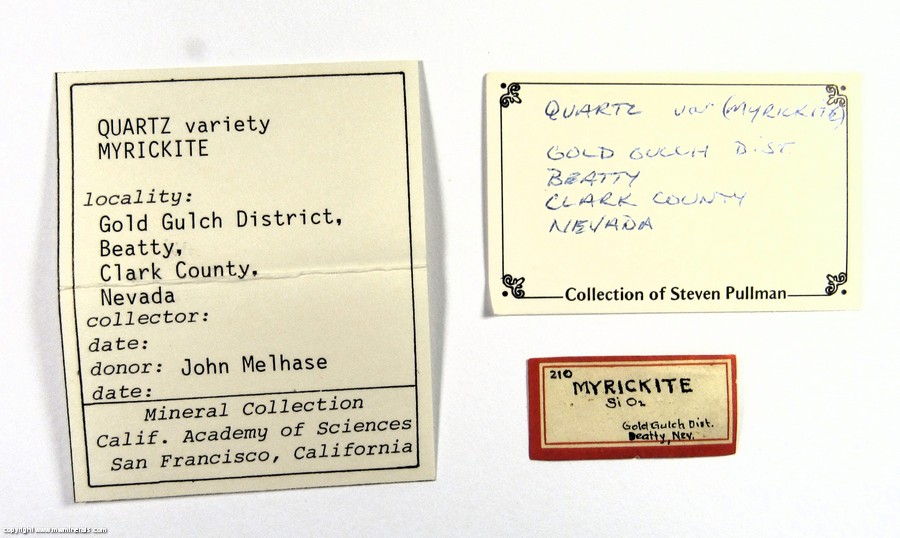 QUARTZ variety
MYRICKITE
locality:
Gold Gulch District,
Beatty,
Clark County,
Nevada
collector:
date:
donor: John Melhase
date:
Mineral Collection
Calif. Academy of Sciences
San Francisco, California
QUARTZ var (MYRICKITE)
GOLD GULCH DIST
BEATTY
CLARK COUNTY
NEVADA
Collection of Steven Pullman
210
MYRICKITE
SiO₂
Gold Gulch Dist.
Beatty, Nev.